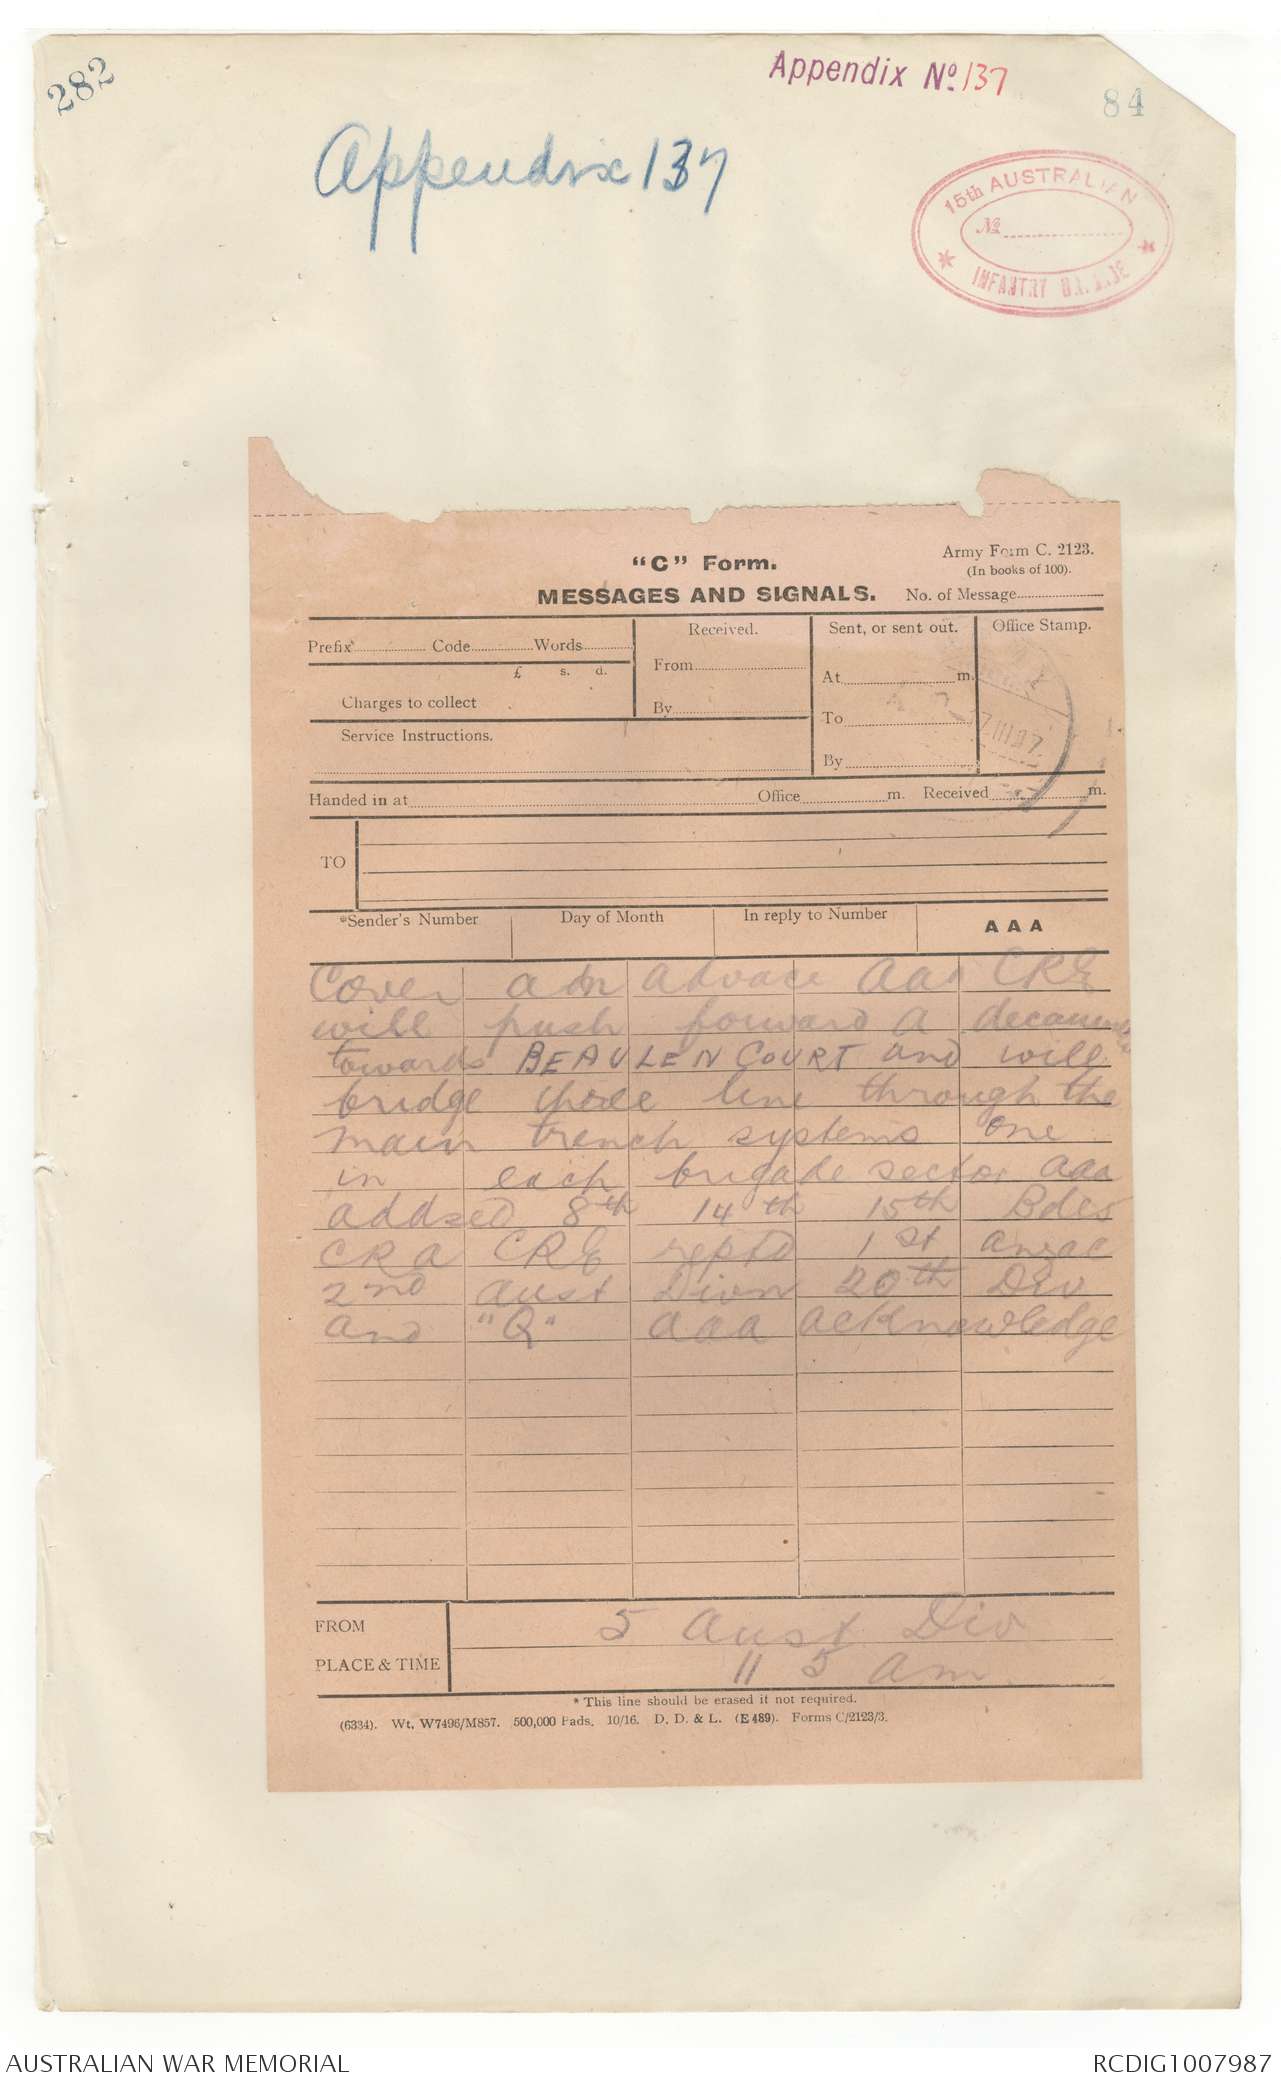 282
Appendix No. 137
84
Appendix 137
15th AUSTRALIAN
No
INFANTRY
"C" Form.
Army Form C. 2123.
(In books of 100).
MESSAGES AND SIGNALS.
No. of Message
Prefix Code Words
Received.
Sent, or sent out.
Office Stamp.
£ s. d.
From
At m.
Charges to collect
By
To
Service Instructions.
By
Handed in at Office m. Received m.
TO
*Sender's Number
Day of Month
In reply to Number
AAA
Cover adn advace aaa CRE
will push forward a
towards BEAULENCOURT and will
bridge line through the
main trench systems one
in each brigade sector aaa
addsed 8th 14th 15th Bdes
CRA CRE reptd 1st anzac
2nd aust Divn 20th Div
and "Q" aaa acknowledge
FROM
5 Aust Div
PLACE & TIME
11 5 am
* This line should be erased if not required.
(6334). Wt. W7496/M857. 500,000 Pads. 10/16. D. D. & L. (E 489). Forms C/2123/3.
AUSTRALIAN WAR MEMORIAL
RCDIG1007987